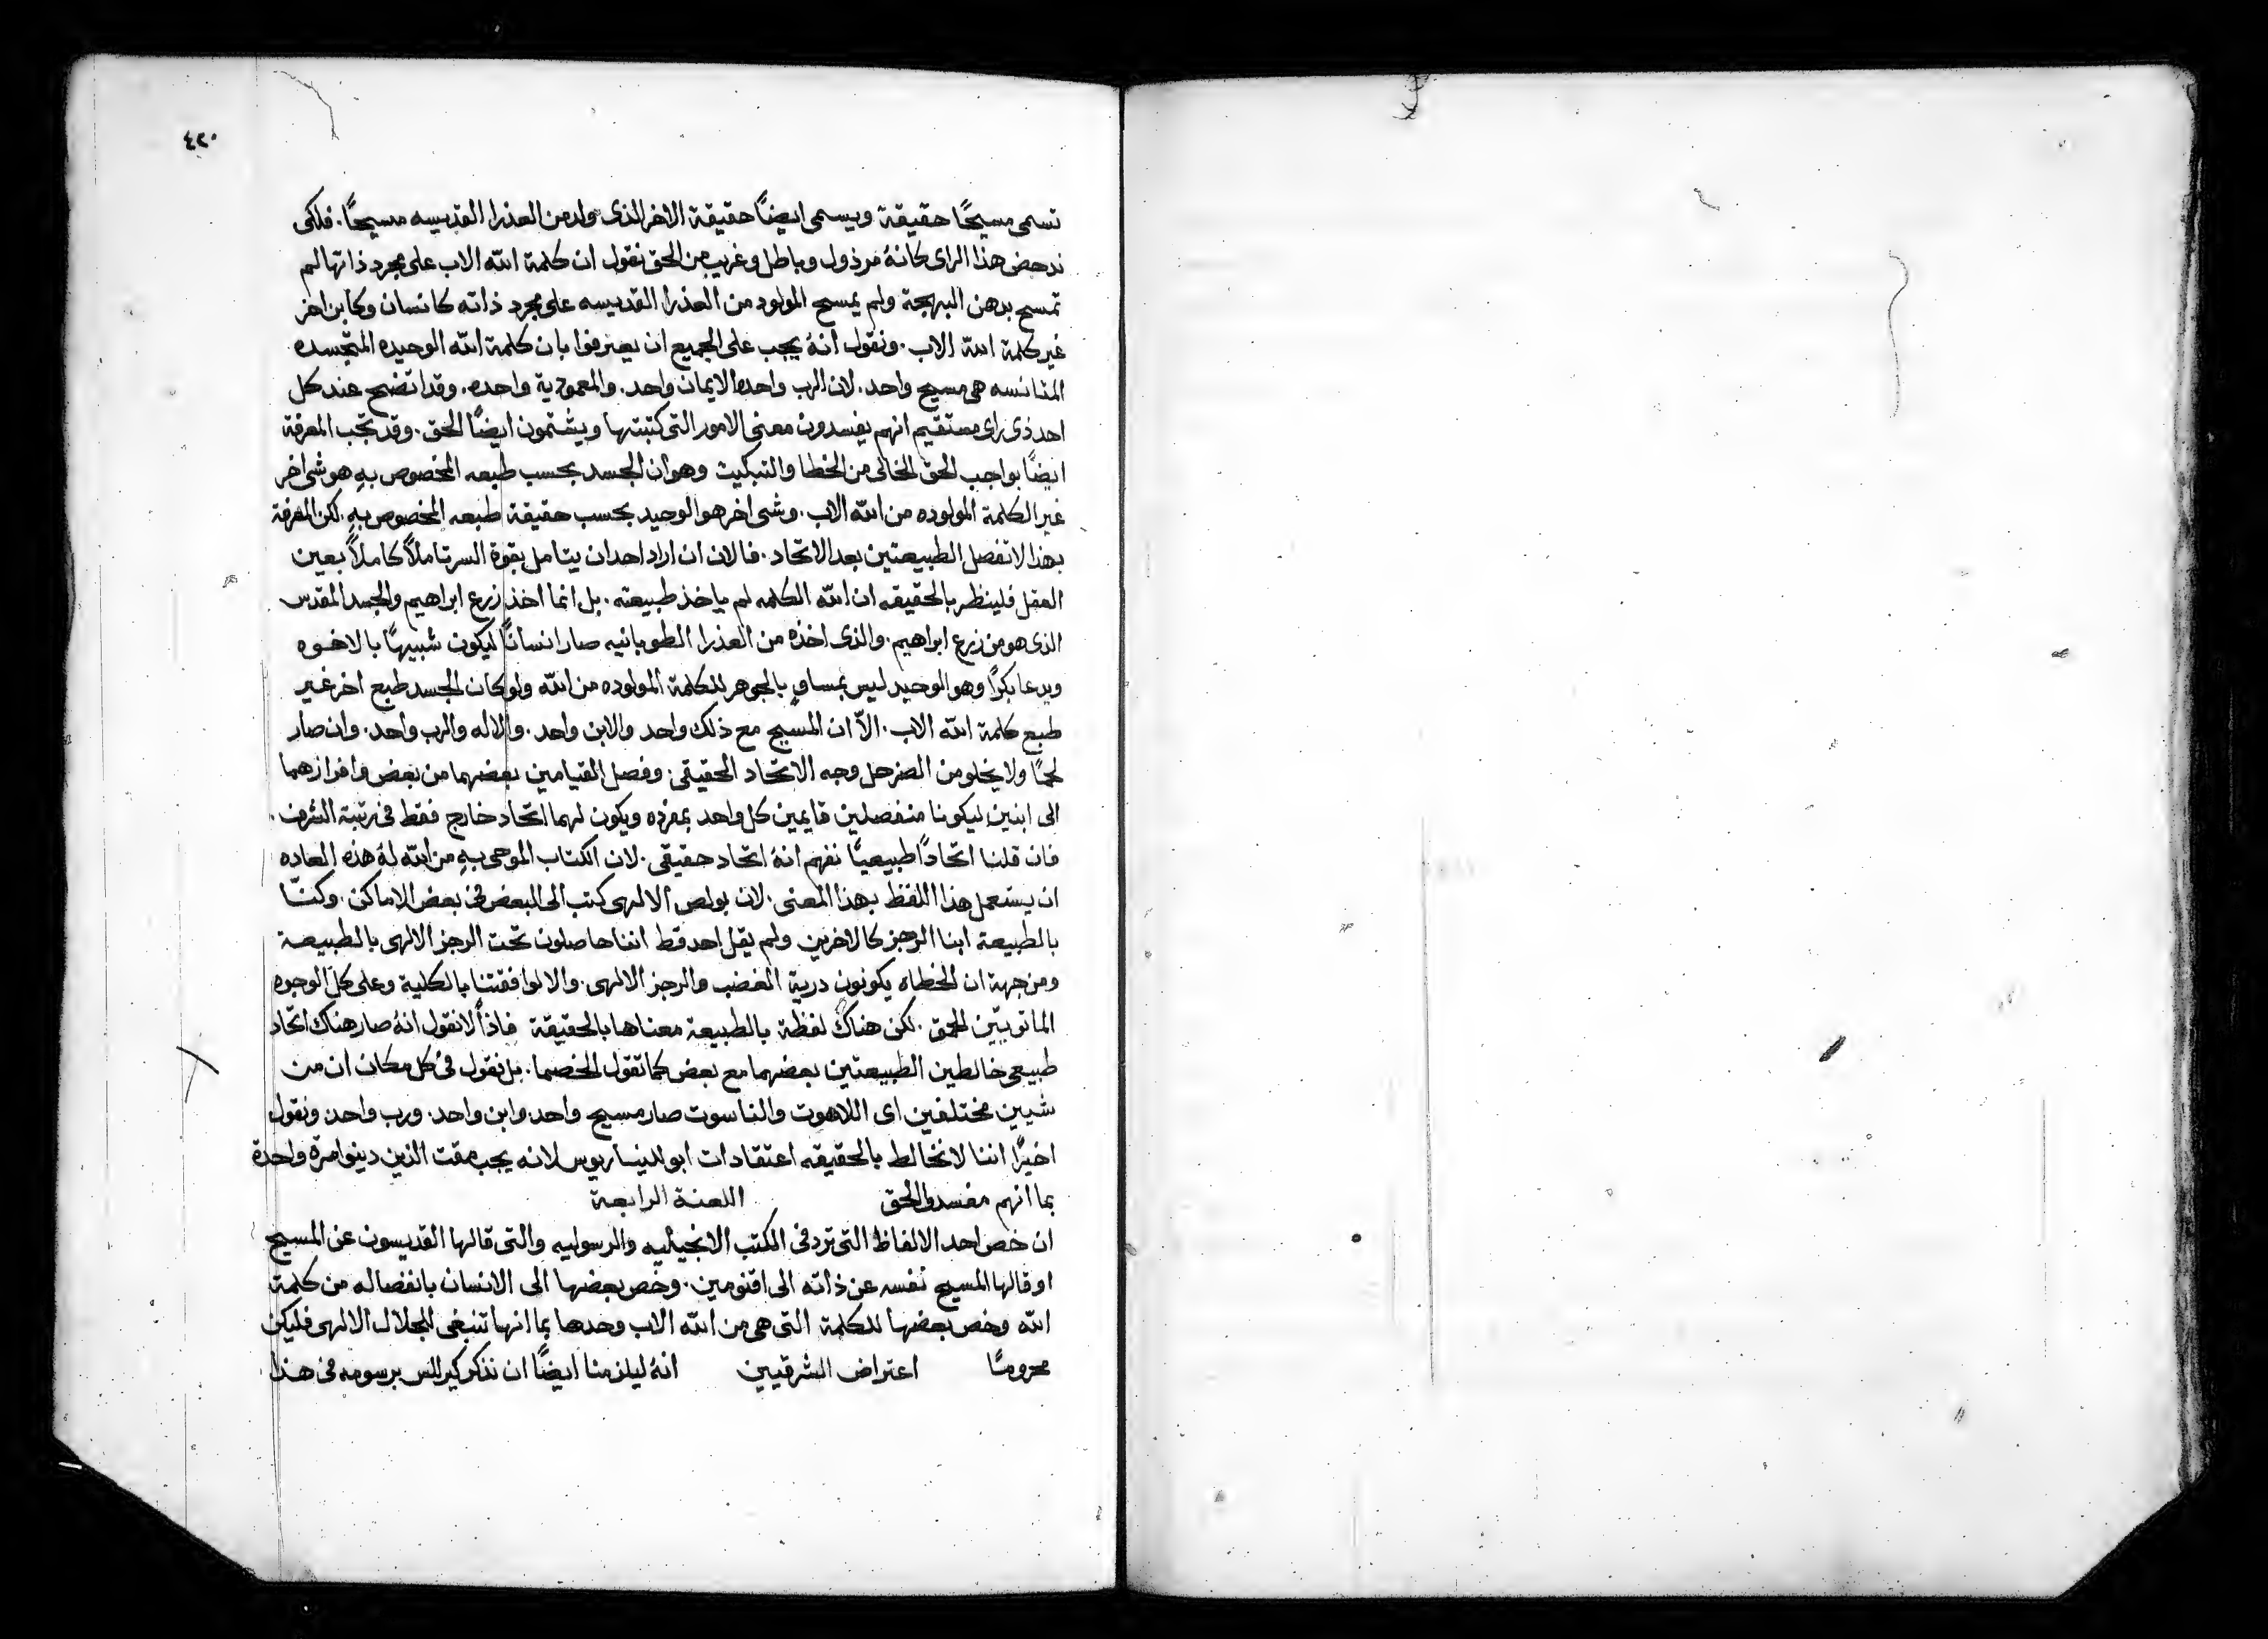 ٤٢٠
تسمى مسيحًا حقيقة ويسمى ايضًا حقيقة الاخر الذى ولد من العذرا القديسه مسيحًا. فلكى
ندحض هذا الراى كانهُ مرذول وباطل وغريب من الحق نقول ان كلمة الله الاب على مجرد ذاتها لم
تمسح بدهن البهجة ولم يمسح المولود من العذرا القديسه على مجرد ذاته كانسان وكابن اخر
غير كلمة الله الاب. ونقول انهُ يجب على الجميع ان يعترفوا بان كلمة الله الوحيده المتجسده
المتانسه هى مسيح واحد. لان الرب واحد والايمان واحد. والمعمودية واحده. وقد اتضح عند كل
احد ذى راى مستقيم انهم يفسدون معنى الامور التى كتبتها ويشتمون ايضًا الحق. وقد تجب المعرفة
ايضًا بواجب الحق الخالى من الخطا والتبكيت وهو ان الجسد بحسب طبعه المخصوص بهِ هو شى اخر
غير الكلمة المولوده من الله الاب. وشى اخر هو الوحيد بحسب حقيقة طبعه المخصوص بهِ. لكن المعرفة
بهذا لا تفصل الطبيعتين بعد الاتحاد. فالان ان اراد احد ان يتامل بقوة السر تاملاً كاملاً بعين
العقل فلينظر بالحقيقه ان الله الكلمه لم ياخذ طبيعته. بل انما اخذ زرع ابراهيم والجسد المقدس
الذى هو من زرع ابراهيم. والذى اخذه من العذرا الطوبانيه صار انسانًا ليكون شبيهًا بالاخوه
ويدعا بكرًا وهو الوحيد ليس بمساوٍ بالجوهر للكلمة المولوده من الله ولو كان للجسد طبع اخر غير
طبع كلمة الله الاب. الاّ ان المسيح مع ذلك واحد والابن واحد. والاله والرب واحد. وان صار
لحمًا ولا يخلو من الضر حل وجه الاتحاد الحقيقى. وفصل القيامين بعضهما من بعض وافرازهما
الى ابنين ليكونا منفصلين قايمين كل واحد بمفرده ويكون لهما اتحاد خارج فقط فى رتبة الشرف.
فان قلنا اتحادًا طبيعيًا نفهم انهُ اتحاد حقيقى. لان الكتاب الموحى بهِ من الله لهُ هذه العاده
ان يستعمل هذا اللفظ بهذا المعنى. لان بولص الالهى كتب الى البعض فى بعض الاماكن. وكنّا
بالطبيعة ابنا الرجز كالاخرين ولم يقل احد قط اننا حاصلون تحت الرجز الالهى بالطبيعة
ومن جهة ان الخطاه يكونون درية الغضب والرجز الالهى. والا لوافقتنا بالكلية وعلى كل الوجوه
المانويّين الحمق. لكن هناك لفظة بالطبيعة معناها بالحقيقة فاذًا لا نقول انهُ صار هناك اتحاد
طبيعى خالطين الطبيعتين بعضهما مع بعض كما تقول الخصما. بل نقول فى كل مكان ان من
شيين مختلفين اى اللاهوت والناسوت صار مسيح واحد وابن واحد. ورب واحد ونقول
اخيرًا اننا لا نخالط بالحقيقه اعتقادات ابوللينساريوس لانه يجب مقت الذين دينوا مرة واحدة
بما انهم مفسدوا الحق اللعنة الرابعة
ان خص احد الالفاظ التى ترد فى الكتب الانجيليه والرسوليه والتى قالها القديسون عن المسيح
او قالها المسيح نفسه عن ذاته الى اقنومين. وخص بعضها الى الانسان بانفصاله من كلمة
الله وخص بعضها للكلمة التى هى من الله الاب وحدها بما انها تنبغى للجلال الالهى فليكن
محرومًا اعتراض الشرقيين انهُ ليلزمنا ايضًا ان نذكر كيرللس برسومه فى هذا